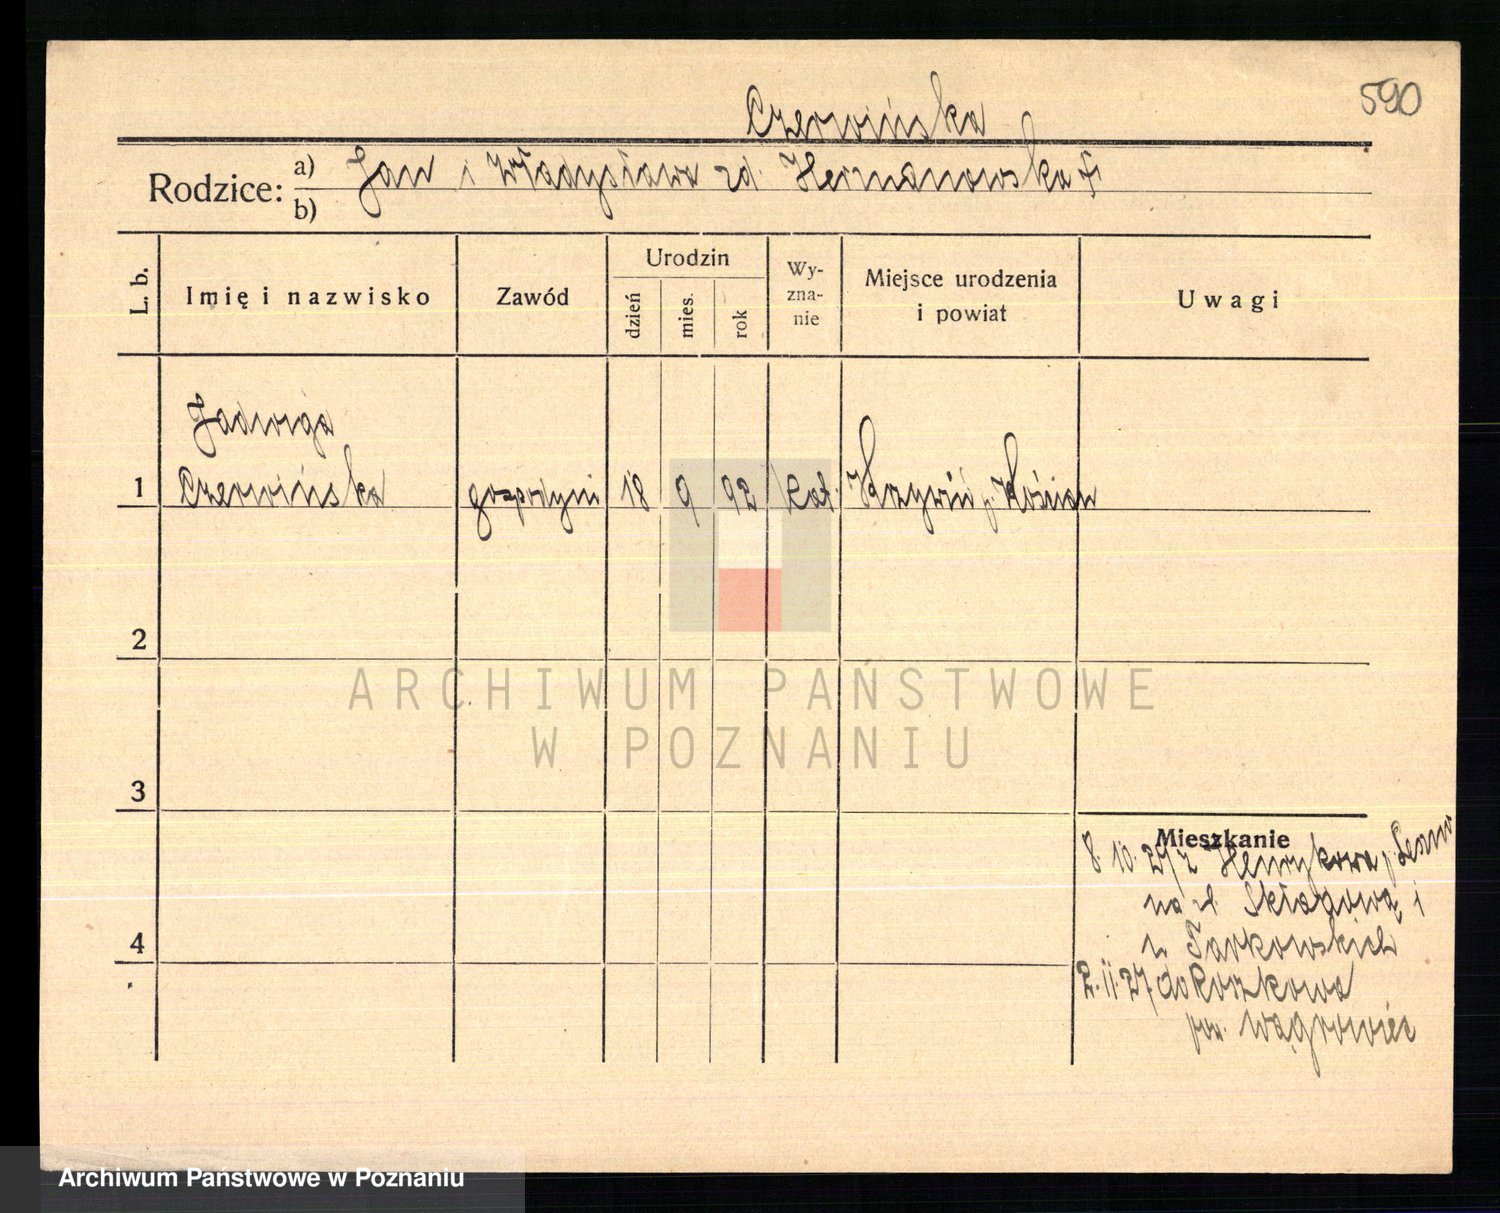 590
Czerwińska
Rodzice: a) Jan i Władysława zd. Hermanowska
b)
L. b. Imię i nazwisko Zawód Urodzin dzień mies. rok Wy-zna-nie Miejsce urodzenia i powiat Uwagi
Jadwiga
1 Czerwińska gospodyni 18 9 92 kat. Krzywiń p. Kościan
2
ARCHIWUM PAŃSTWOWE
W POZNANIU
3
Mieszkanie
8.10.27 z Henrykowa p. Leszno
na ul. Składową
u Tarkowskich
2.11.27 do Roszkowa
pow. Wągrowiec
4
Archiwum Państwowe w Poznaniu